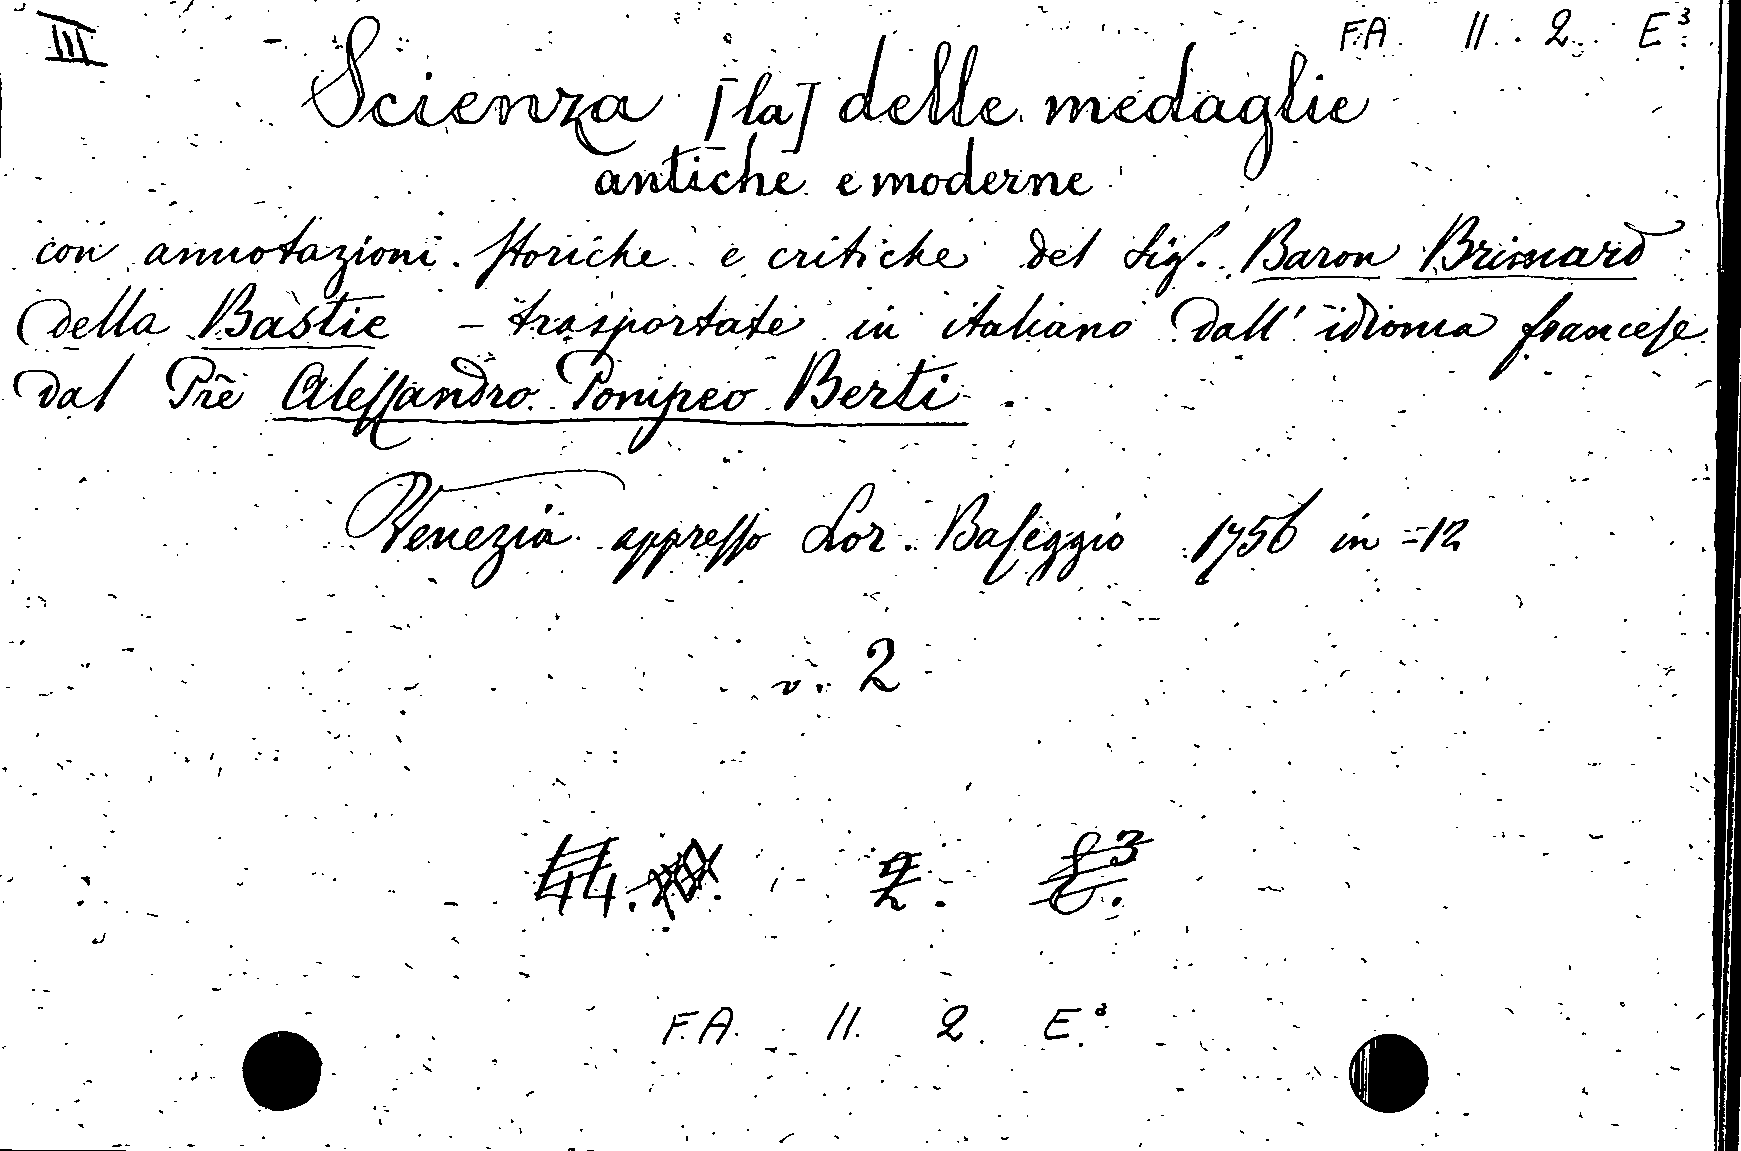 III
FA. 11. 2. E.³
Scienza [la] delle medaglie
antiche e moderne
con annotazioni storiche e critiche del Sigʳ. Baron Brimard
della Bastie - trasportate in italiano dall' idioma francese
dal Prē Alessandro Pompeo Berti.
Venezia appresso Lor. Baseggio 1756 in =12
v. 2
44. 2. E.³
F.A. 11. 2. E.³